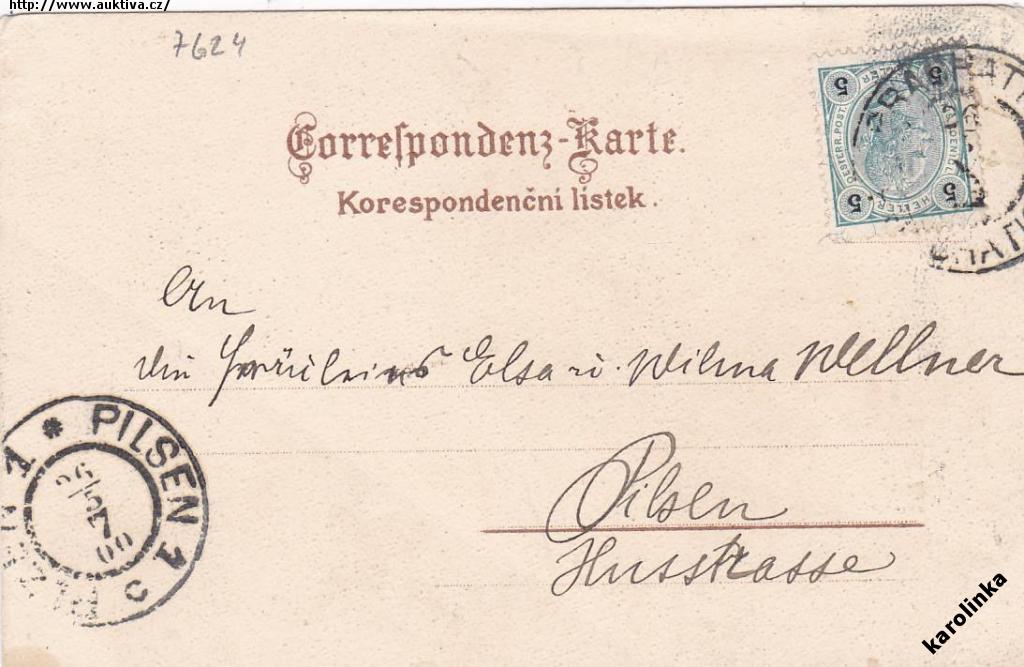 http://www.auktiva.cz/
7624
Correspondenz-Karte.
Korespondenční lístek.
5 HELLER 5
OESTERR. POST.
5 HELLER 5
An
die Fräuleins Elsa u. Wilma Wellner
Pilsen
Husstrasse
* PILSEN 1
1
c
karolinka